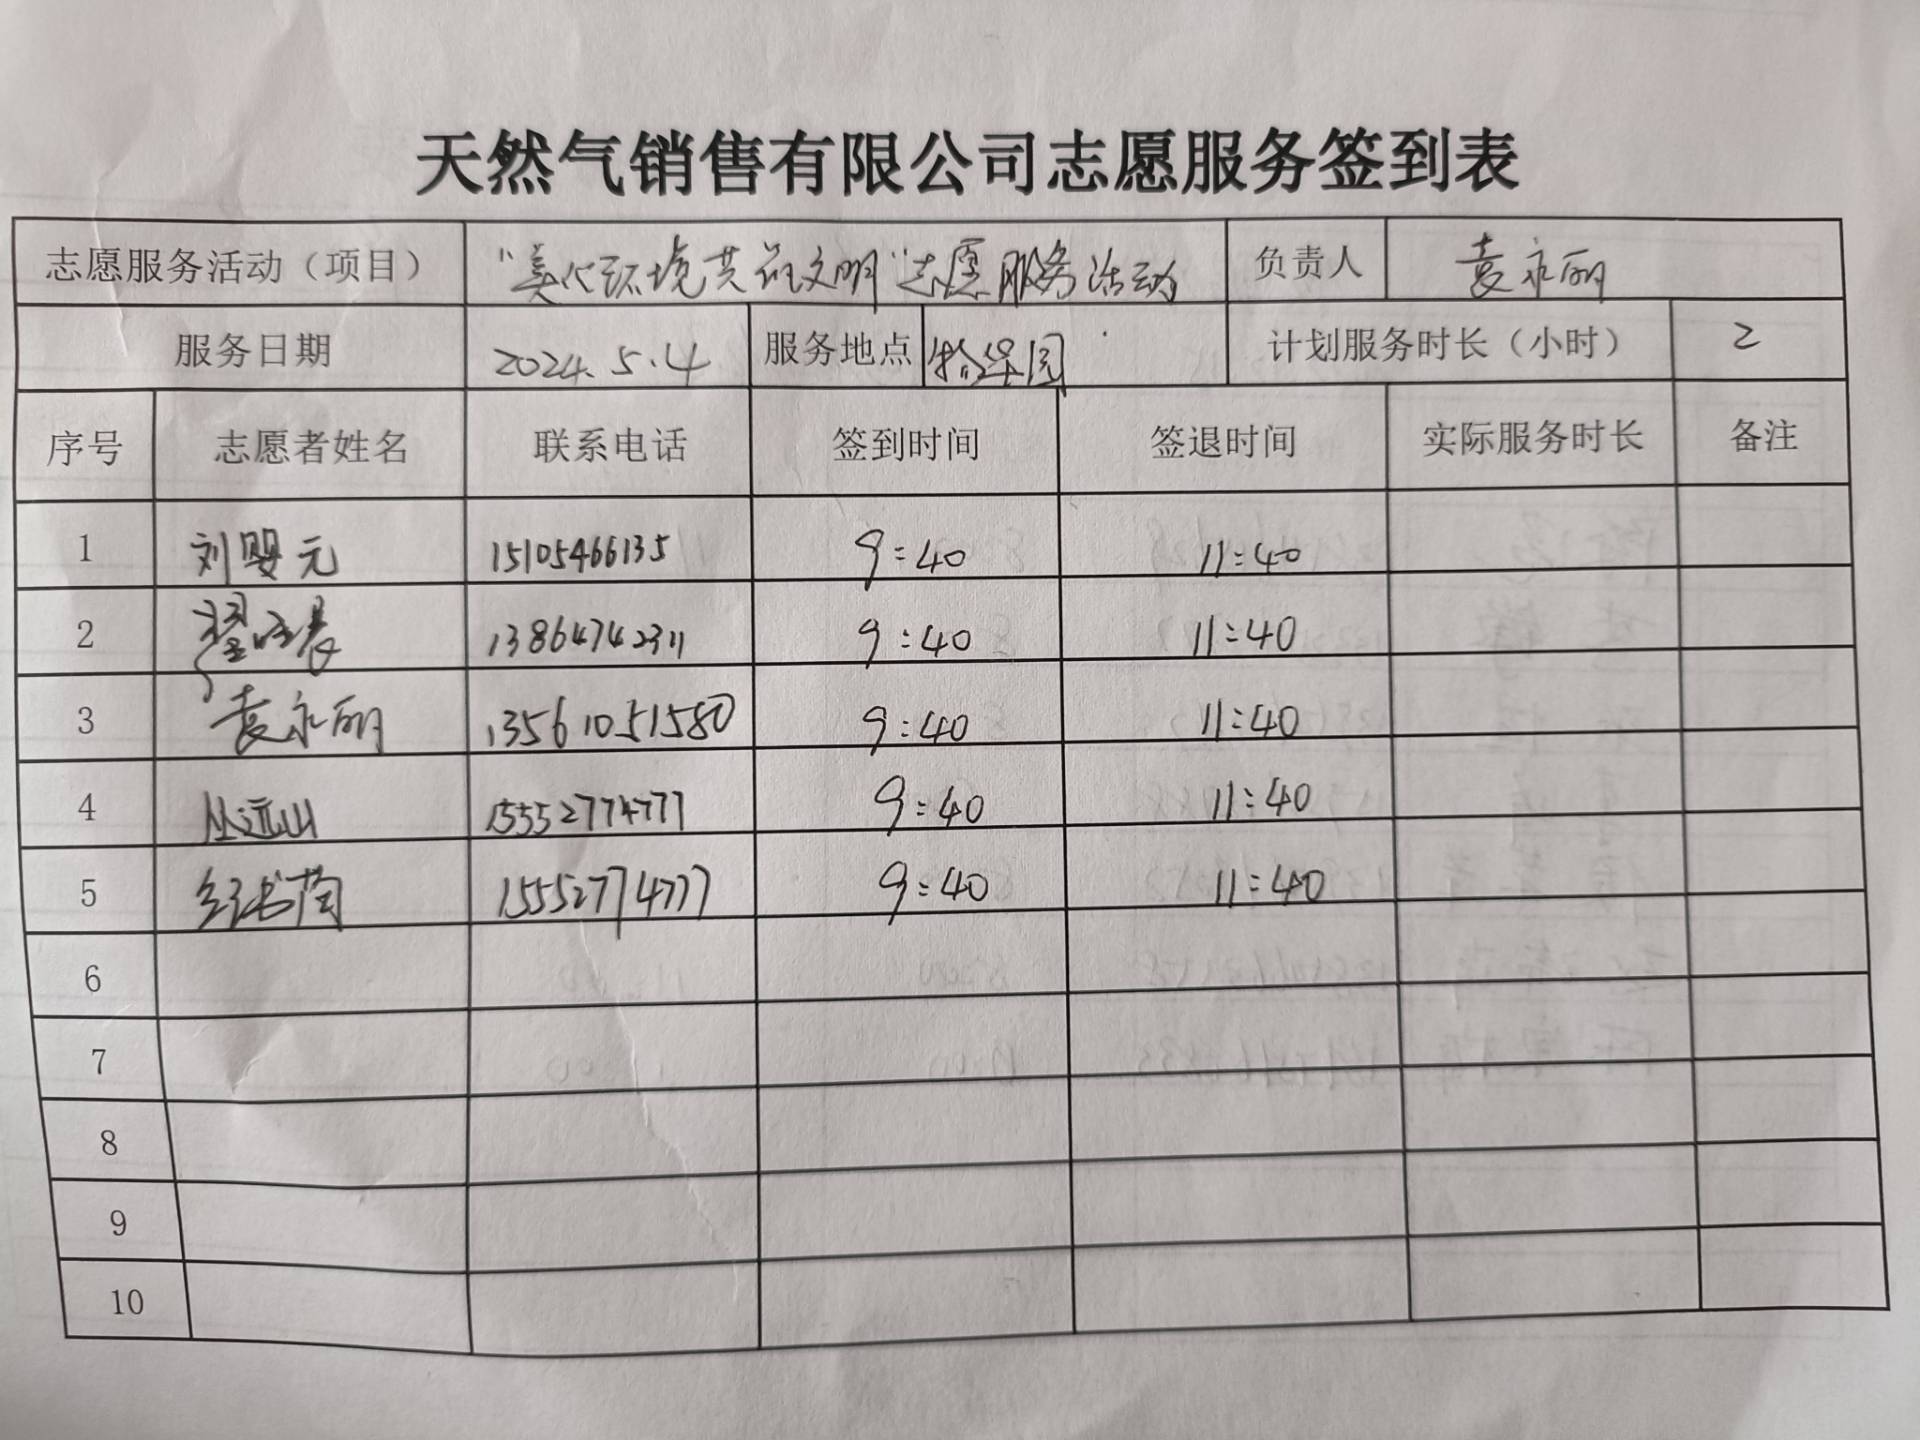 天然气销售有限公司志愿服务签到表
志愿服务活动（项目） "美化环境共筑文明"志愿服务活动 负责人 袁永丽
服务日期 2024.5.4 服务地点 计划服务时长（小时） 2
序号 志愿者姓名 联系电话 签到时间 签退时间 实际服务时长 备注
1 刘婴元 15105466135 9:40 11:40
2 13864742311 9:40 11:40
3 袁永丽 13561051580 9:40 11:40
4 丛远山 15552774777 9:40 11:40
5 15552774777 9:40 11:40
6
7
8
9
10